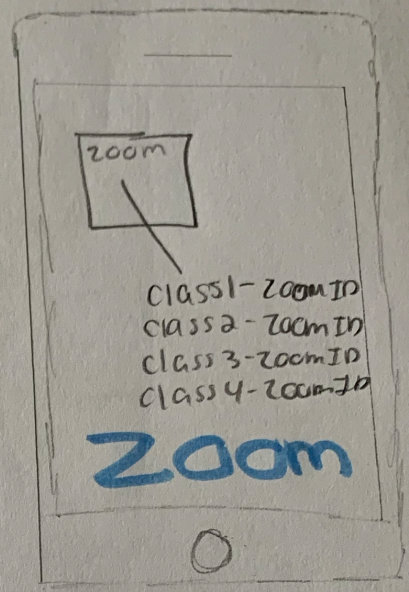 zoom
Class1-ZoomID
Class2-ZoomID
Class3-ZoomID
Class4-ZoomID
Zoom